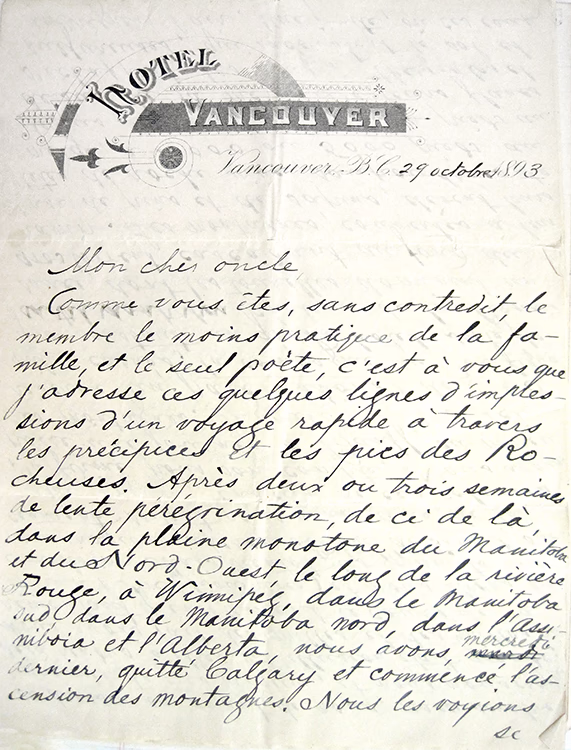 HOTEL
VANCOUVER
Vancouver, B.C. 29 octobre 1893
Mon cher oncle,
Comme vous êtes, sans contredit, le
membre le moins pratique de la fa-
mille, et le seul poëte, c'est à vous que
j'adresse ces quelques lignes d'impres-
sions d'un voyage rapide à travers
les précipices et les pics des Ro-
cheuses. Après deux ou trois semaines
de lente pérégrination, de ci de là,
dans la plaine monotone du Manitoba
et du Nord-Ouest, le long de la rivière
Rouge, à Winnipeg, dans le Manitoba
sud, dans le Manitoba nord, dans l'Assi-
niboia et l'Alberta, nous avons, mercredi
dernier, quitté Calgary et commencé l'as-
cension des montagnes. Nous les voyions
se